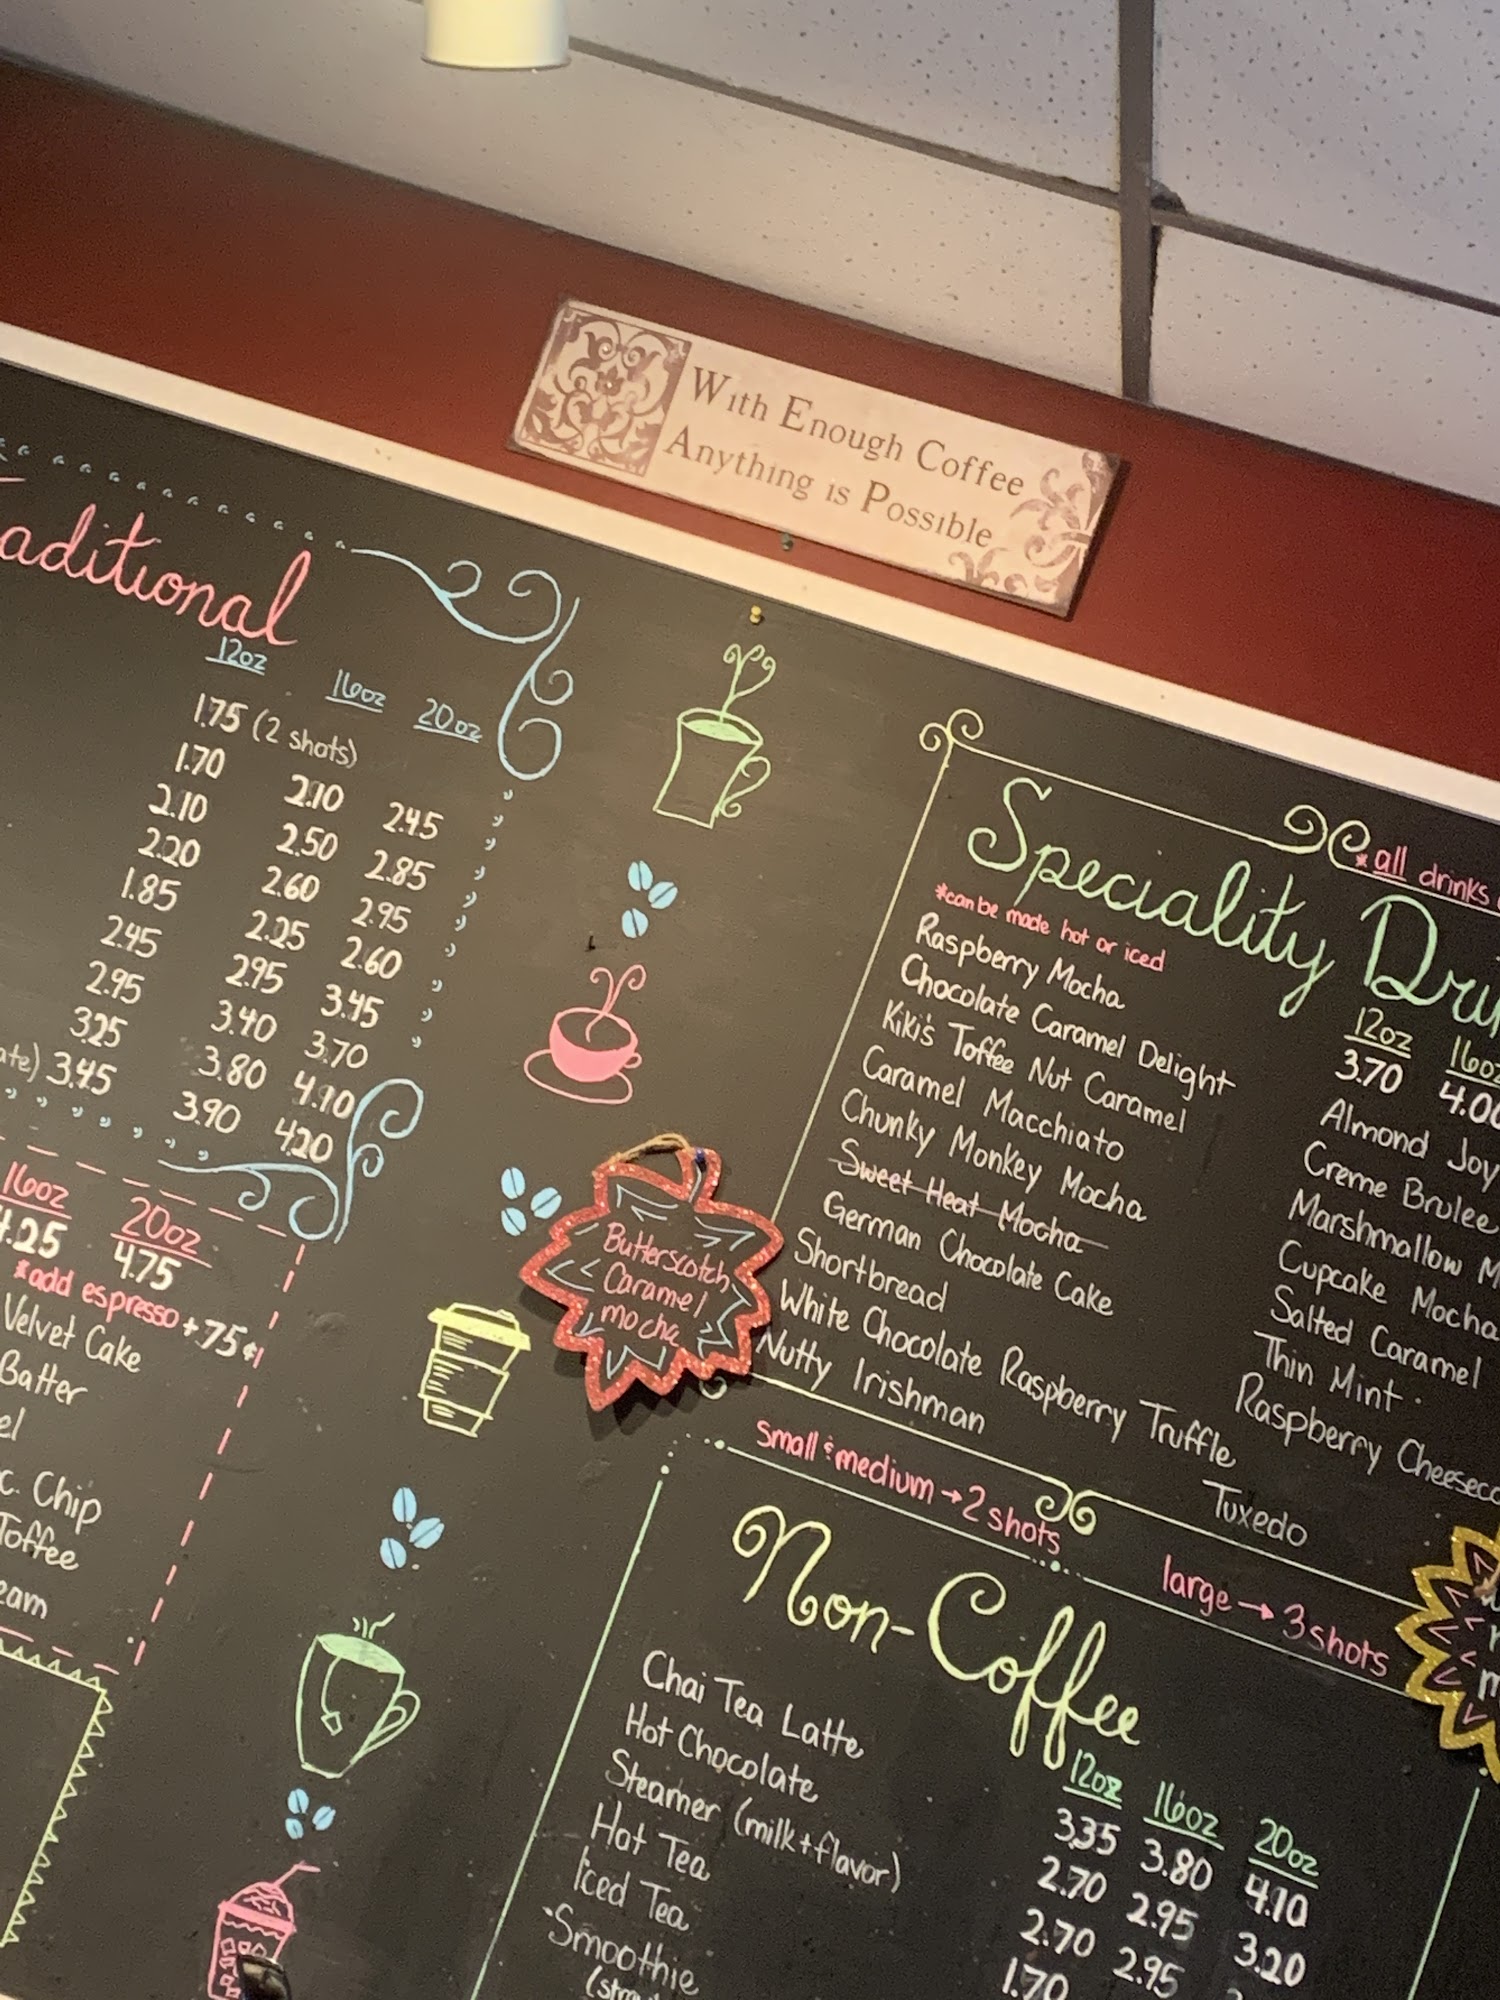 With Enough Coffee
Anything is Possible
aditional
12oz 16oz 20oz
1.75 (2 shots)
1.70 2.10 2.45
2.10 2.50 2.85
2.20 2.60 2.95
1.85 2.25 2.60
2.45 2.95 3.45
2.95 3.40 3.70
3.25 3.80 4.10
ate) 3.45 3.90 4.20
16oz 20oz
4.25 4.75
*add espresso +.75¢
Velvet Cake
Batter
el
c. Chip
Toffee
eam
Butterscotch
Caramel
mocha
Speciality Drin
*all drinks
*can be made hot or iced
Raspberry Mocha
Chocolate Caramel Delight
Kiki's Toffee Nut Caramel
Caramel Macchiato
Chunky Monkey Mocha
Sweet Heat Mocha
German Chocolate Cake
Shortbread
White Chocolate Raspberry Truffle
Nutty Irishman
12oz 16oz
3.70 4.00
Almond Joy
Creme Brulee
Marshmallow M
Cupcake Mocha
Salted Caramel
Thin Mint
Raspberry Cheeseca
Tuxedo
small & medium → 2 shots
large → 3 shots
Non-Coffee
12oz 16oz 20oz
Chai Tea Latte 3.35 3.80 4.10
Hot Chocolate 2.70 2.95 3.20
Steamer (milk+flavor) 2.70 2.95
Hot Tea 1.70
Iced Tea
Smoothie